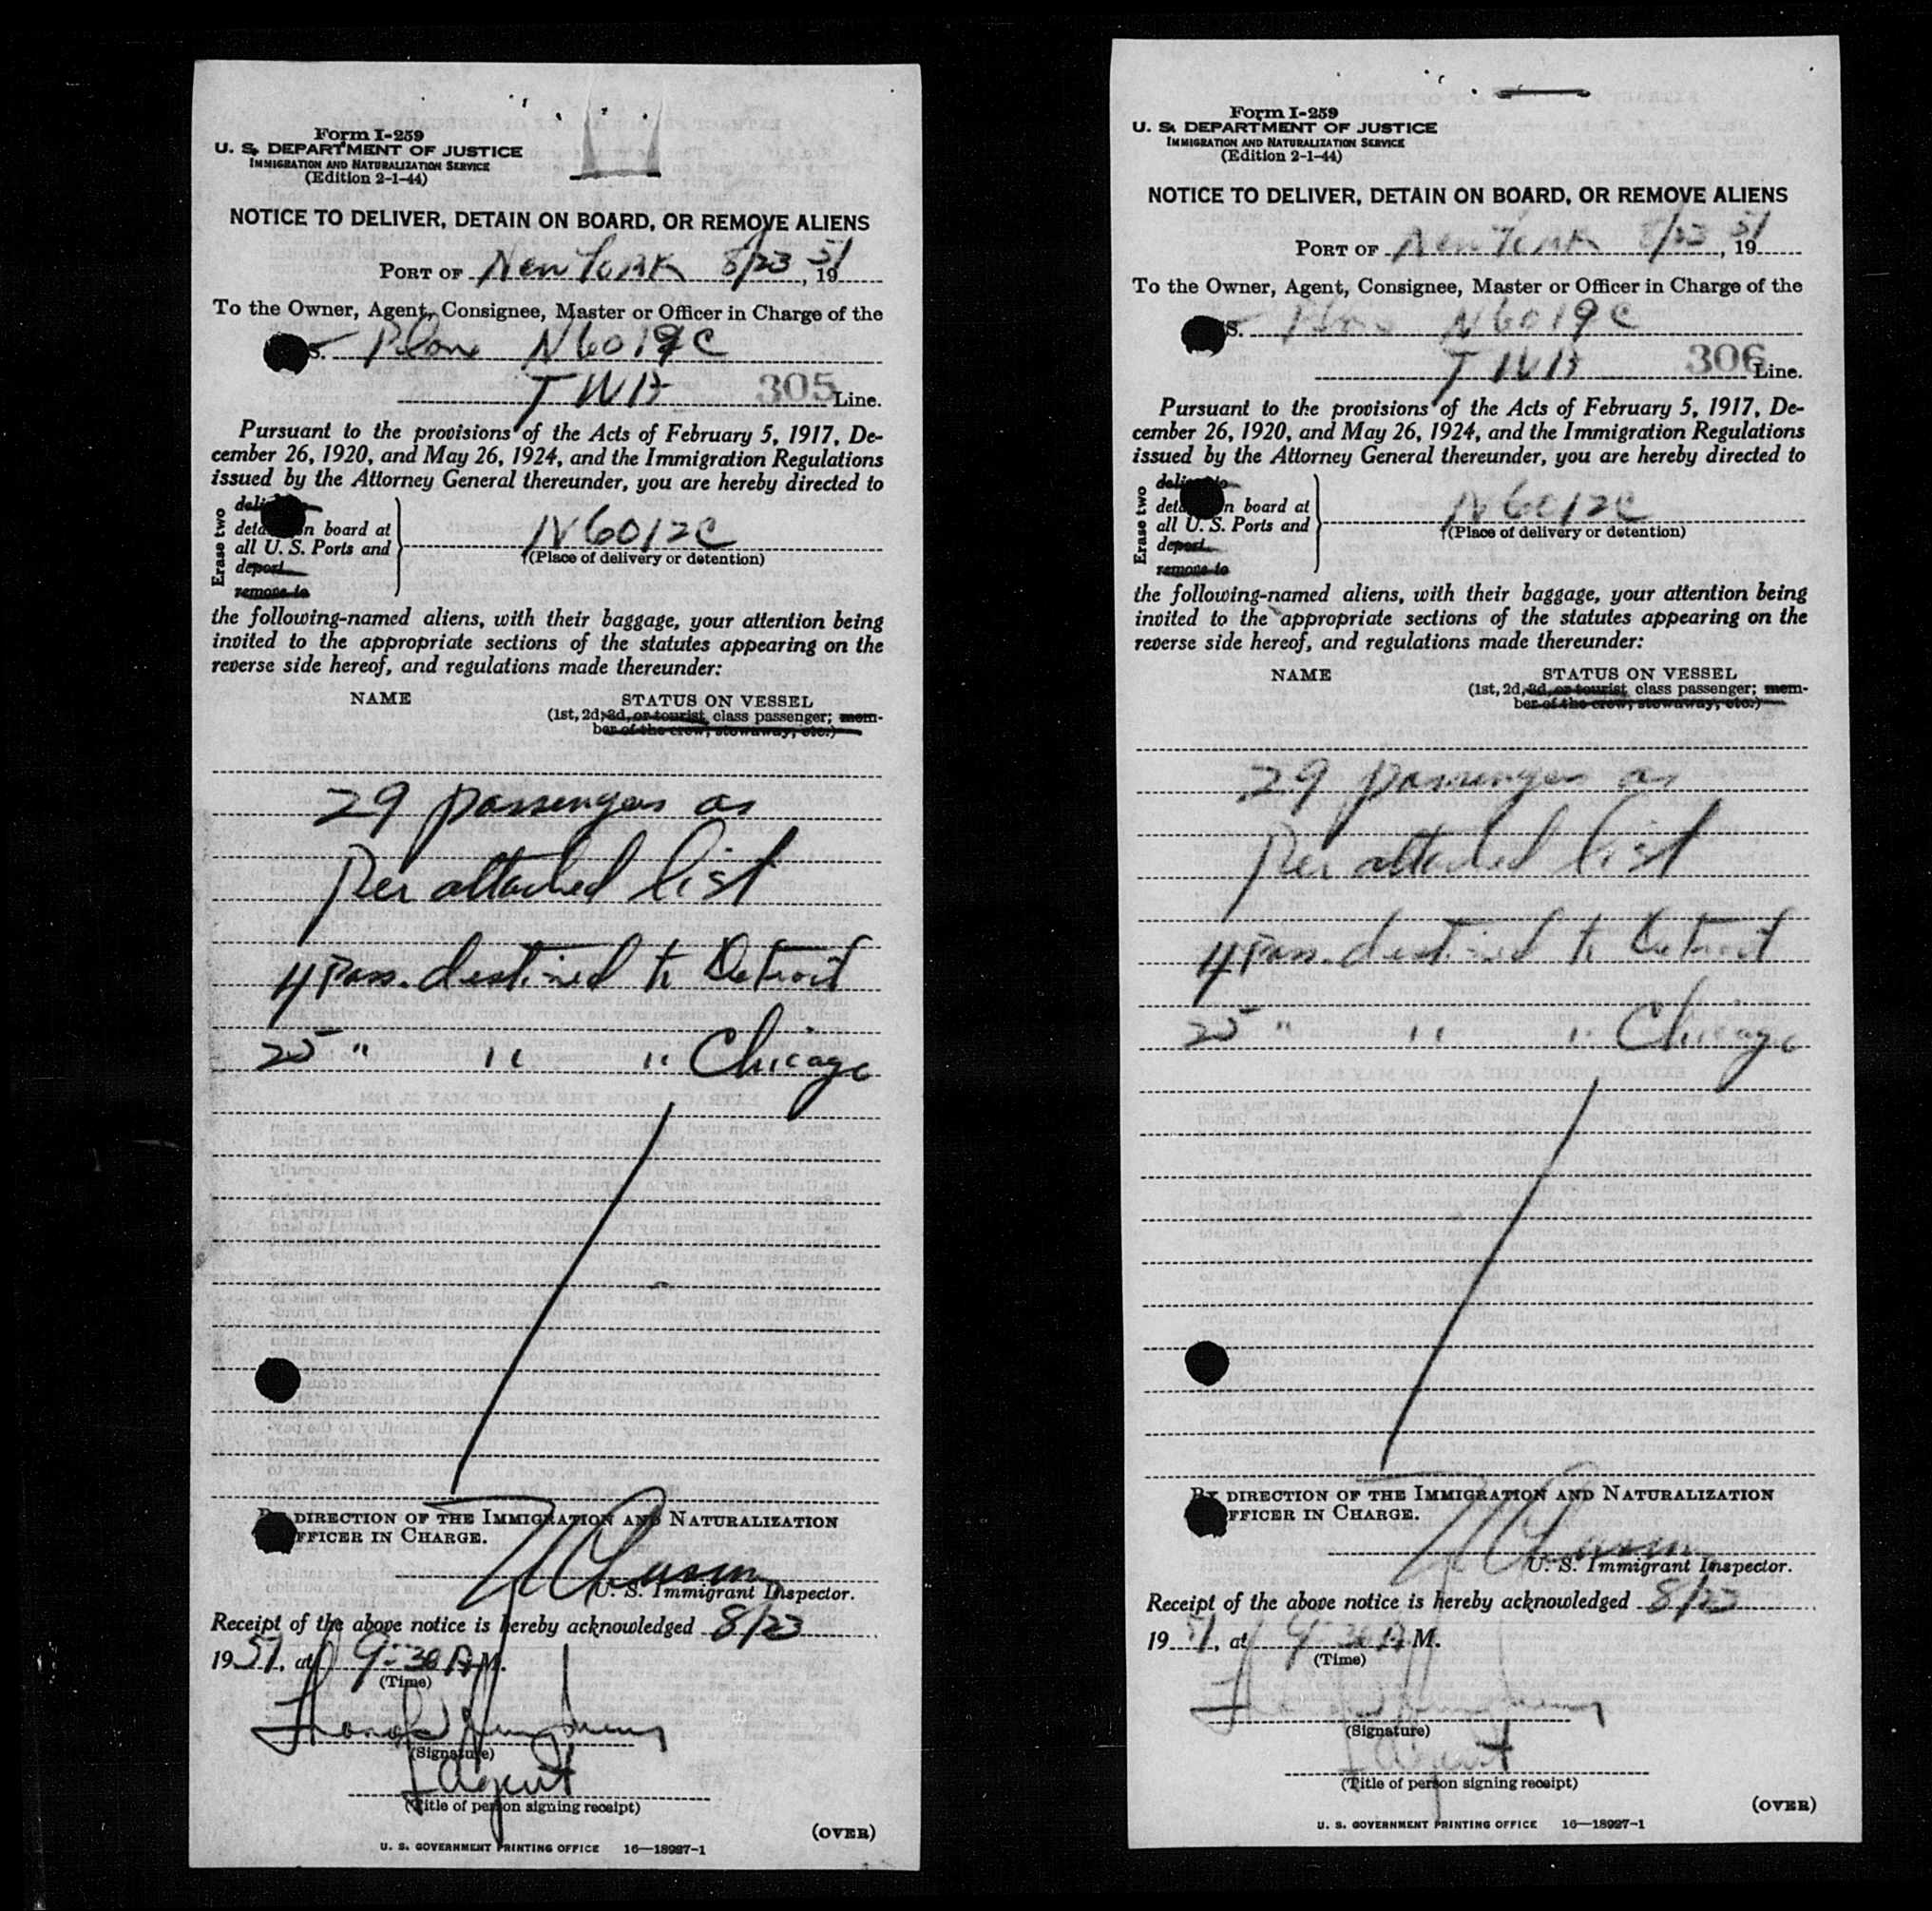 Form I-259
U. S. DEPARTMENT OF JUSTICE
IMMIGRATION AND NATURALIZATION SERVICE
(Edition 2-1-44)
NOTICE TO DELIVER, DETAIN ON BOARD, OR REMOVE ALIENS
PORT OF New York 8/23, 1951
To the Owner, Agent, Consignee, Master or Officer in Charge of the
S. Plane N6019C
TWA 305 Line.
Pursuant to the provisions of the Acts of February 5, 1917, De-
cember 26, 1920, and May 26, 1924, and the Immigration Regulations
issued by the Attorney General thereunder, you are hereby directed to
Erase two
deta n board at
all U. S. Ports and
deport
remove to
N6012C
(Place of delivery or detention)
the following-named aliens, with their baggage, your attention being
invited to the appropriate sections of the statutes appearing on the
reverse side hereof, and regulations made thereunder:
NAME STATUS ON VESSEL
(1st, 2d, 3d, or tourist class passenger; mem-
ber of the crew, stowaway, etc.)
29 passengers as
Per attached list
4 Pass. destined to Detroit
25 " " " Chicago
BY DIRECTION OF THE IMMIGRATION AND NATURALIZATION
OFFICER IN CHARGE.
U. S. Immigrant Inspector.
Receipt of the above notice is hereby acknowledged 8/23
1951, at 9:30 A M.
(Time)
(Signature)
Agent
(Title of person signing receipt)
(OVER)
U. S. GOVERNMENT PRINTING OFFICE 16—18927-1
Form I-259
U. S. DEPARTMENT OF JUSTICE
IMMIGRATION AND NATURALIZATION SERVICE
(Edition 2-1-44)
NOTICE TO DELIVER, DETAIN ON BOARD, OR REMOVE ALIENS
PORT OF New York 8/23, 1951
To the Owner, Agent, Consignee, Master or Officer in Charge of the
S. Plane N6019C
TWA 306 Line.
Pursuant to the provisions of the Acts of February 5, 1917, De-
cember 26, 1920, and May 26, 1924, and the Immigration Regulations
issued by the Attorney General thereunder, you are hereby directed to
Erase two
deta n board at
all U. S. Ports and
deport
remove to
N6012C
(Place of delivery or detention)
the following-named aliens, with their baggage, your attention being
invited to the appropriate sections of the statutes appearing on the
reverse side hereof, and regulations made thereunder:
NAME STATUS ON VESSEL
(1st, 2d, 3d, or tourist class passenger; mem-
ber of the crew, stowaway, etc.)
29 passengers as
Per attached list
4 Pass. destined to Detroit
25 " " " Chicago
BY DIRECTION OF THE IMMIGRATION AND NATURALIZATION
OFFICER IN CHARGE.
U. S. Immigrant Inspector.
Receipt of the above notice is hereby acknowledged 8/23
1951, at 9:30 A M.
(Time)
(Signature)
Agent
(Title of person signing receipt)
(OVER)
U. S. GOVERNMENT PRINTING OFFICE 16—18927-1